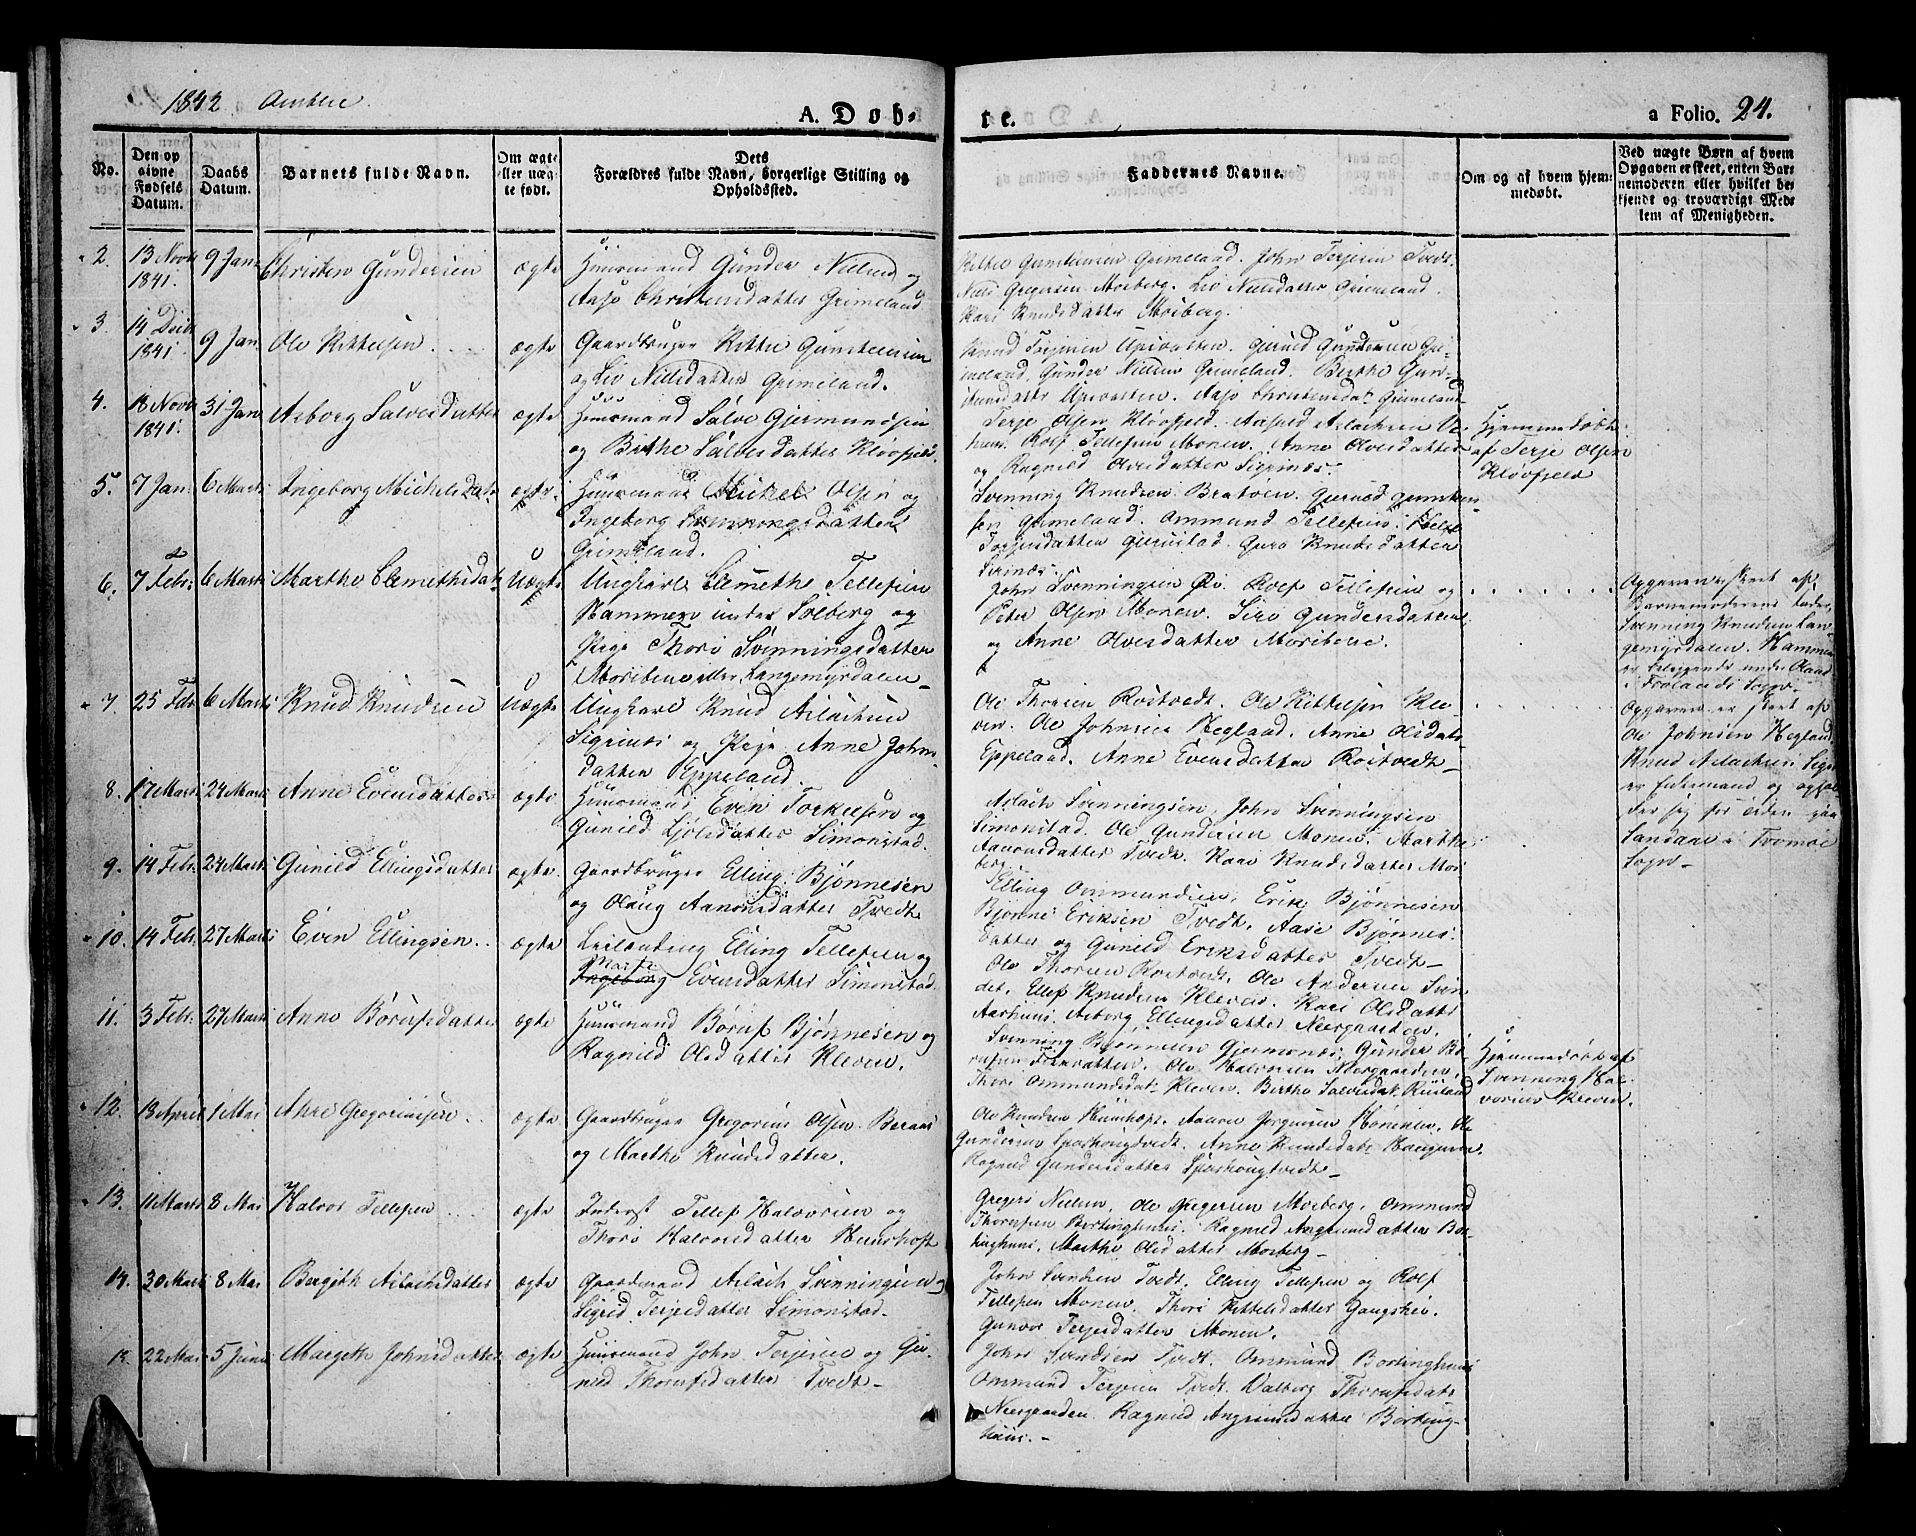 1842 Amblie
A. Døb-
te.
a Folio. 24.
No.
Den op
givne
Fødsels
Datum.
Daabs
Datum.
Barnets fulde Navn.
Om ægte
eller uæg-
te født.
Dets
Forældres fulde Navn, borgerlige Stilling og
Opholdssted.
Faddernes Navne.
Om og af hvem hjem-
medøbt.
Ved uægte Børn af hvem
Opgaven er skeet, enten Bar-
nemoderen eller hvilket be-
kjendt og troværdigt Med-
lem af Menigheden.
2. 13 Novbr 1841. 9 Jan. Christen Gundersen ægte
Huusmand Gunder Nielsen og
Aaso Christensdatter Grimeland
Kittel Gunsteinsen Grimeland. John Terjesen Tvedt.
Niels Gregersen Mosberg. Liv Nielsdatter Grimeland.
Kari Knudsdatter Mosberg.
3. 14 Decbr 1841. 9 Jan. Ole Kittelsen ægte
Gaardbruger Kittel Gunsteinsen
og Liv Nielsdatter Grimeland.
Knud Terjesen Uprvatten. Gjeruld Gundersen Gri-
meland. Gunder Nielsen Grimeland. Berthe Gun-
datter Uprvatten. Aaso Christensdat. Grimeland
4. 18 Novbr 1841. 31 Jan. Asborg Salvesdatter ægte
Huusmand Salve Gjermundsen
og Birthe Salvesdatter Kløvfjeld.
Terje Olsen Kløvfjeld. Aslach
Rolf Tellefsen Monen. Anne Olvesdatter
og Ragnild Olvesdatter Sigrinæs.
Hjemmedøbt
af Terje Olsen
Kløvfjeld
5. 7 Jan. 6 Marts Ingeborg Michelsdat. ægte.
Huusmand Mickel Olsen og
Ingeborg Svenningsdatter
Grimeland.
Svenning Knudsen Bratøen. Gjeruld Gunstein-
sen Grimeland. Ommund Tellefsen.
Terjesdatter Gjerustad. Guro Knudsdatter
6. 7 Febr. 6 Marts Marthe Clemethsdat. Uægte
Ungkarl Clemeth Tellefsen
Hammern under Solberg og
Pige Thori Svenningsdatter
Moriberne eller Langemyrdalen
John Svenningsen Øv. Rolf Tellefsen og
Peter Olsen Monen. Siri Gundersdatter
og Anne Olvesdatter Moriberne.
Opgaven er skeet af
Barnemoderens Fader,
Svenning Knudsen Lan-
gemyrdalen. Hammern
er beliggende under Olaad
i Frolands Sogn.
7. 25 Febr 6 Marts Knud Knudsen Uægte
Ungkarl Knud Aslachsen
Sigrinæs og Pige Anne Johns-
datter Eppeland.
Ole Thorsen Rostvedt. Ole Kittelsen Kle-
ven. Ole Johnsen Hegland. Anne Olsdatr
Eppeland. Anne Evensdatter Rostvedt
Opgaven er skeet af
Ole Johnsen Hegland
Knud Aslachsen Sigri
er Enkemand og ophol-
der sig for tiden paa
Sandaae i Tromøe
Sogn
8. 17 Marts 24 Marts Anne Evensdatter ægte
Huusmand Even Torkelsen og
Gunild Ljølsdatter Simonstad.
Aslach Svenningsen, John Svenningsen
Simonstad. Ole Gundersen Monen. Marthe
Aanonsdatter Tvedt. Kari Knudsdatter Mos-
berg.
9. 14 Febr. 24 Marts Gunild Ellingsdatter ægte.
Gaardbruger Elling Bjønnesen
og Olaug Aanonsdatter Tvedt
Elling Ommundsen, Erik Bjønnesen
Bjønne Eriksen Tvedt. Aase Bjønnes-
datter og Gunild Eriksdatter Tvedt
10. 14 Febr. 27 Marts Even Ellingsen. ægte
Leilænding Elling Tellefsen og
Marte
Ingeborg Evensdatter Simonstad.
Ole Thorsen Rostvedt. Ole Andersen Svin
det. Ellef Knudsen Kleven. Kari Olsdatter
Aashuus. Asborg Ellingsdatter Neergaarden.
11. 3 Febr. 27 Marts Anne Børufsdatter ægte
Huusmand Børuf Bjønnesen og
Ragnild Olsdatter Kleven.
Svenning Bjønnesen Gjermonæs. Gunder Bø-
rufsen. Ole Halvorsen Neergaarden.
Thori Ommundsdat. Kleven. Berthe Salvesdat. Riisland
Hjemmedøbt af
Svenning Hal-
vorsen Kleven.
12. 13 April 1 Mai Ahre Gregoriusen ægte
Gaardbruger Gregorius Olsen Beraas
og Marthe Knudsdatter.
Ole Knudsen Huushoft. Aanon Jørgensen Hønemyr. Ole
Gundersen Sparhougtvedt. Anne Knudsdatr Haugerun.
Ragnild Gundersdatter Sparhougtvedt
13. 11 Marts 8 Mai Halvor Tellefsen ægte
Inderst Tellef Halvorsen og
Thori Halvorsdatter Huushoft
Gregers Nielsen. Ole Gregersen Mosberg. Ommund
Thorufsen Bortinghuus. Ragnild Angrimsdatter Bor-
tinghuus. Marthe Olsdatter Mosberg
14. 30 Marts 8 Mai Bergith Aslachsdatter ægte
Gaardmand Aslach Svenningsen og
Sigrid Terjesdatter Simonstad.
John Svendsen Tvedt. Elling Tellefsen og Rolf
Tellefsen Monen. Thori Kittelsdatter Gaugshei.
Gunvor Terjesdatter Monen.
15. 22 Mai 5 Juni Margith Johnsdatter ægte
Huusmand John Terjesen og Gu-
nild Thorufsdatter Tvedt
John Svendsen Tvedt. Ommund Bortinghuus
Ommund Terjesen Tvedt. Valberg Thorufsdatr
Neergaarden. Ragnild Angrimsdatter Borting-
huus.